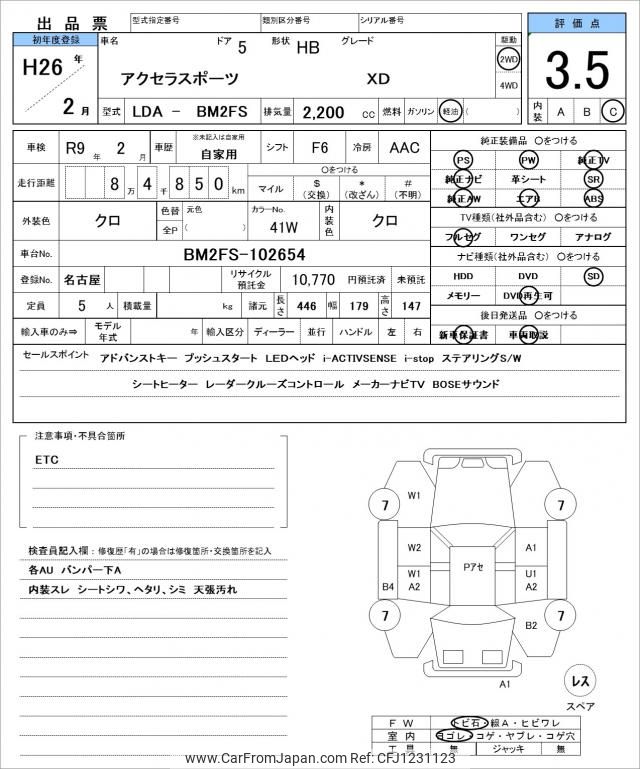 出 品 票
型式指定番号 類別区分番号 シリアル番号
評 価 点
初年度登録 車名 ドア 5 形状 HB グレード 駆動
H26 年 2 月
アクセラスポーツ XD
2WD
4WD
3.5
型式 LDA － BM2FS 排気量 2,200 cc 燃料 ガソリン 軽油 ( )
内装 A B C
車検 R9 年 2 月 車歴 ※未記入は自家用 自家用 シフト F6 冷房 AAC
純正装備品 〇をつける
PS PW 純正TV
純正ナビ 革シート SR
純正AW エアB ABS
走行距離 8 万 4 千 8 5 0 km
〇をつける
マイル $ (交換) * (改ざん) # (不明)
外装色 クロ 色替 元色 全P ( ) カラーNo. 41W 内装色 クロ
TV種類(社外品含む) 〇をつける
フルセグ ワンセグ アナログ
車台No. BM2FS-102654
ナビ種類(社外品含む) 〇をつける
HDD DVD SD
メモリー DVD再生可
登録No. 名古屋 リサイクル預託金 10,770 円預託済 未預託
定員 5 人 積載量 kg 諸元 長さ 446 幅 179 高さ 147
後日発送品 〇をつける
新車保証書 車両取説
輸入車のみ⇒ モデル年式 年 輸入区分 ディーラー 並行 ハンドル 左 右
セールスポイント アドバンストキー プッシュスタート LEDヘッド i-ACTIVSENSE i-stop ステアリングS/W
シートヒーター レーダークルーズコントロール メーカーナビTV BOSEサウンド
注意事項・不具合箇所
ETC
検査員記入欄：修復歴「有」の場合は修復箇所・交換箇所を記入
各AU バンパー下A
内装スレ シートシワ、ヘタリ、シミ 天張汚れ
W1
7 7
W2 A1
Pアセ
W1 U1
B4 A2 A2
7 7
B2
A1
レス
スペア
F W トビ石・線A・ヒビワレ
室 内 ヨゴレ・コゲ・ヤブレ・コゲ穴
工 具 無 ジャッキ 無
www.CarFromJapan.com Ref:CFJ1231123